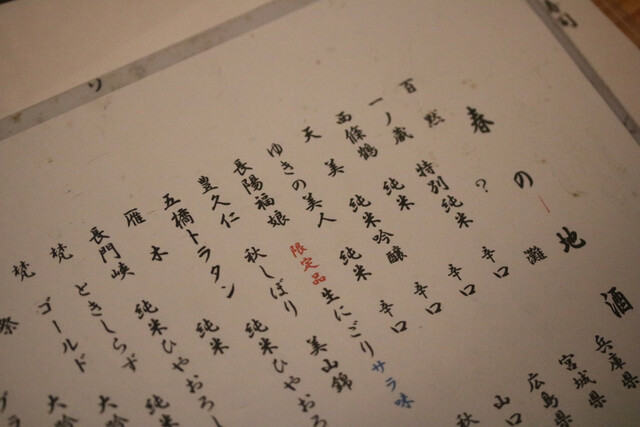 春の地酒
百黙 ? 灘 兵庫県
一ノ蔵 特別純米 辛口 宮城県
西條鶴 純米 辛口 広島県
天美 純米吟醸 辛口 山口
ゆきの美人 純米 辛口 秋
長陽福娘 限定品 生にごり サラ味
豊久仁 秋しぼり 美山錦
五橋トラタン 純米ひやおろ
雁木 純米
長門峡 純米ひやおろし
梵 ときしらず 純米
梵 ゴールド 大吟